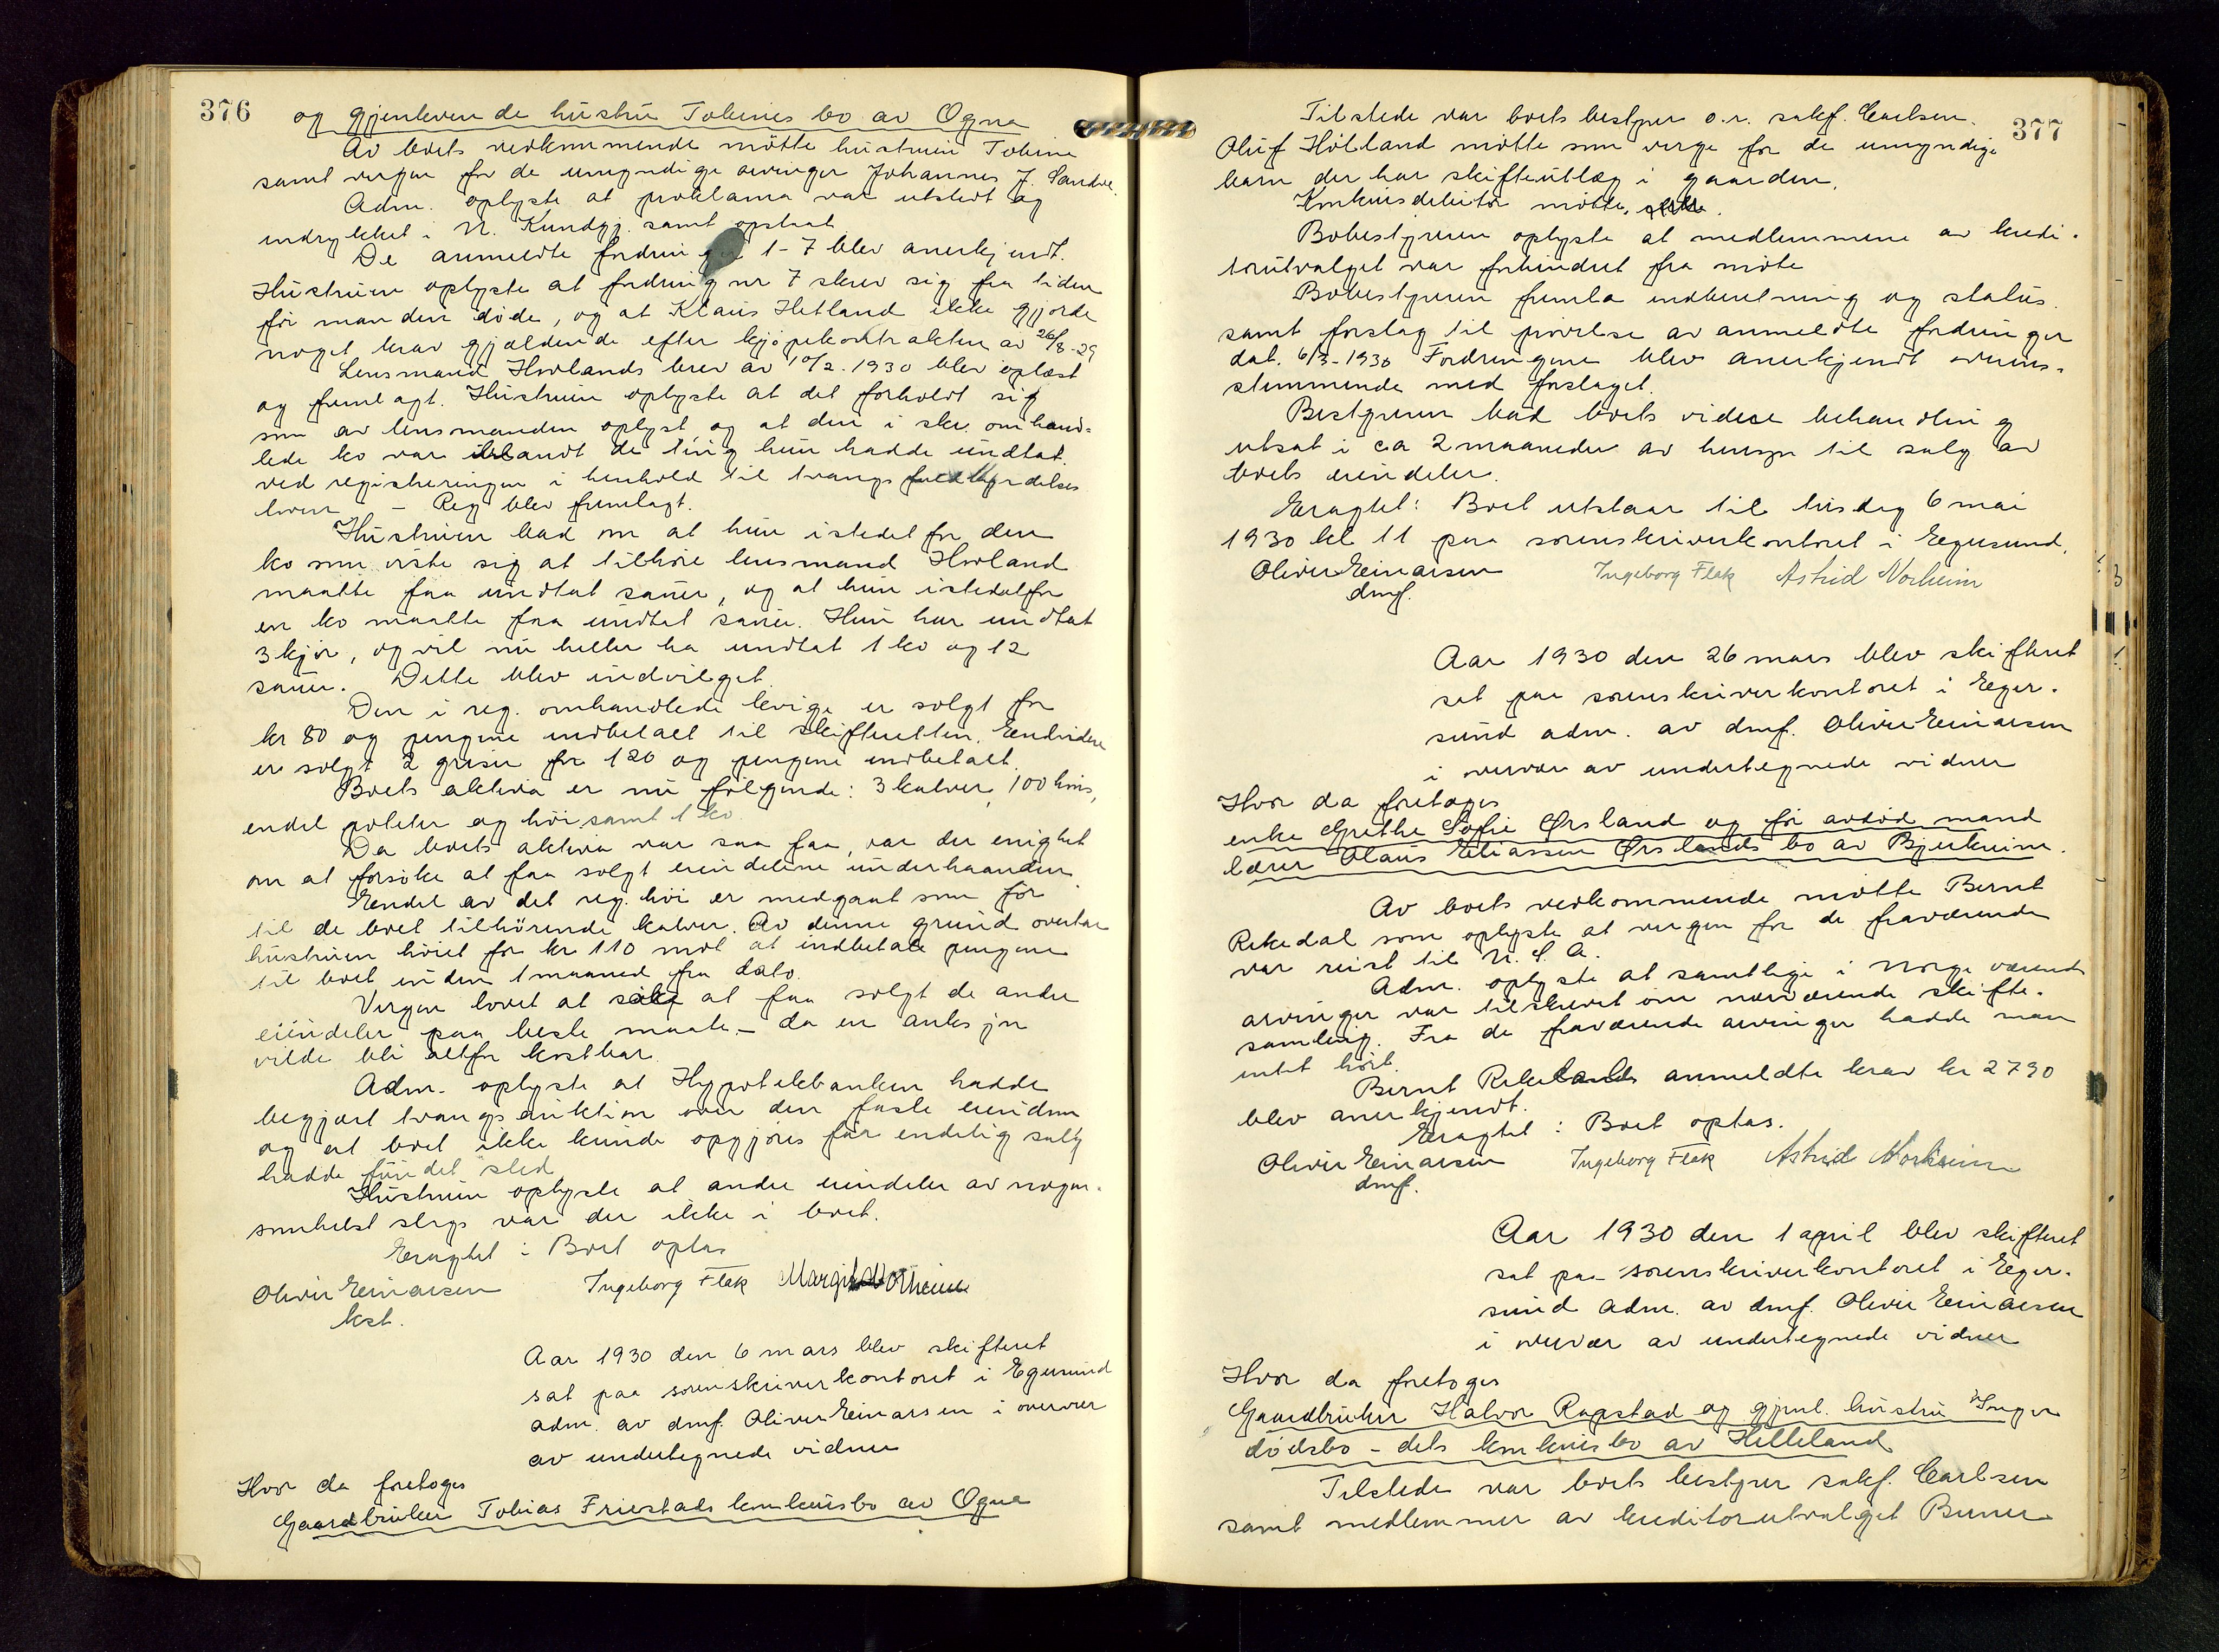 376
og gjenlevende hustru Tobines bo av Ogna
Av boets vedkommende mötte hustruen Tobine
samt vergen for de umyndige arvinger Johannes J. Sandve.
Adm. oplyste at proklama var utstedt og
indrykket i N. Kundgj. samt opslaat
De anmeldte fordringer 1-7 blev anerkjendt.
Hustruen oplyste at fordring nr 7 skrev sig fra tiden
før manden døde, og at Klaus Hetland ikke gjorde
noget krav gjældende efter kjøpekontrakten av 26/8-29
Lensmand Hovlands brev av 10/2. 1930 blev oplæst
og fremlagt. Hustruen oplyste at det forholdt sig
som av lensmanden oplyst og at den i skr. omhand-
lede ko var iblandt de ting hun hadde undtat
ved registreringen i henhold til tvangsfuldbyrdelses
loven - Reg blev fremlagt.
Hustruen bad om at hun istedet for den
ko som viste sig at tilhøre lensmand Hovland
maatte faa undtat sauer, og at hun istedetfor
en ko maatte faa undtat sauer. Hun har undtat
3 kjør, og vil nu heller ha undtat 1 ko og 12
sauer. Dette blev indvilget.
Den i reg. omhandlede kvige er solgt for
kr 80 og pengene indbetalt til skifteretten. Endvidere
er solgt 2 griser for 120 og pengene indbetalt.
Boets aktiva er nu følgende: 3 kalver, 100 høns,
endel poteter og høi, samt 1 ko.
Da boets aktiva var saa faa, var der enighet
om at forsøke at faa solgt eiendelene underhaanden
Endel av det reg. høi er medgaat som for
til de boet tilhörende kalver. Av denne grund overtar
hustruen höiet for kr 110 mot at indbetale pengene
til boet inden 1 maaned fra dato.
Vergen lovet at søke at faa solgt de andre
eiendeler paa beste maate - da en auksjon
vilde bli altfor kostbar.
Adm. oplyste at Hypotekbanken hadde
begjært tvangsauktion over den faste eiendom
og at boet ikke kunde opgjøres før endelig salg
hadde fundet sted
Hustruen oplyste at andre eiendeler av nogen-
somhelst slags var der ikke i boet.
Eragtet: Boet optas
Oliver Einarsen Ingeborg Flek Margit Norheim
kst.
Aar 1930 den 6 mars blev skifteret
sat paa sorenskriverkontoret i Egersund
adm. av dmf. Oliver Einarsen i overvær
av undertegnede vidner
Hvor da foretoges
Gaardbruker Tobias Friestads konkursbo av Ogna
377
Tilstede var boets bestyrer o.r. sakf. Carlsen.
Oluf Hölland møtte som verge for de umyndige
barn der har skifteutlæg i gaarden.
Konkursdebitor møtte.
Bobestyreren oplyste at medlemmene av kredi-
torutvalget var forhindret fra møte
Bobestyreren fremla indberetning og status
samt forslag til prøvelse av anmeldte fordringer
dat. 6/3-1930 Fordringene blev anerkjendt overens-
stemmende med forslaget.
Bestyreren bad boets videre behandling
utsat i ca 2 maaneder av hensyn til salg av
boets eiendeler.
Eragtet: Boet utstaar til tirsdag 6 mai
1930 kl 11 paa sorenskriverkontoret i Egersund.
Oliver Einarsen Ingeborg Flek Astrid Norheim
dmf.
Aar 1930 den 26 mars blev skifteret
sat paa sorenskriverkontoret i Eger-
sund adm. av dmf. Oliver Einarsen
i overvær av undertegnede vidner
Hvor da foretoges
enke Grethe Sofie Ørsland og før avdød mand
lærer Olaus Eliassen Ørslands bo av Bjerkreim.
Av boets vedkommende møtte Bernt
Rekedal som oplyste at vergen for de fraværende
var reist til U.S.A.
Adm. oplyste at samtlige i Norge værende
arvinger var tilskrevet om nærværende skifte-
samling. Fra de fraværende arvinger hadde man
intet hørt.
Bernt Rekedals anmeldte krav kr 2790
blev anerkjendt.
Eragtet: Boet optas.
Oliver Einarsen Ingeborg Flek Astrid Norheim
dmf.
Aar 1930 den 1 april blev skifteret
sat paa sorenskriverkontoret i Eger-
sund adm. av dmf. Oliver Einarsen
i overvær av undertegnede vidner
Hvor da foretoges
Gaardbruker Halvor Ragstad og gjenl. hustru Ingers
dødsbo - dets konkursbo av Helleland
Tilstede var boets bestyrer sakf. Carlsen
samt medlemmer av kreditorutvalget